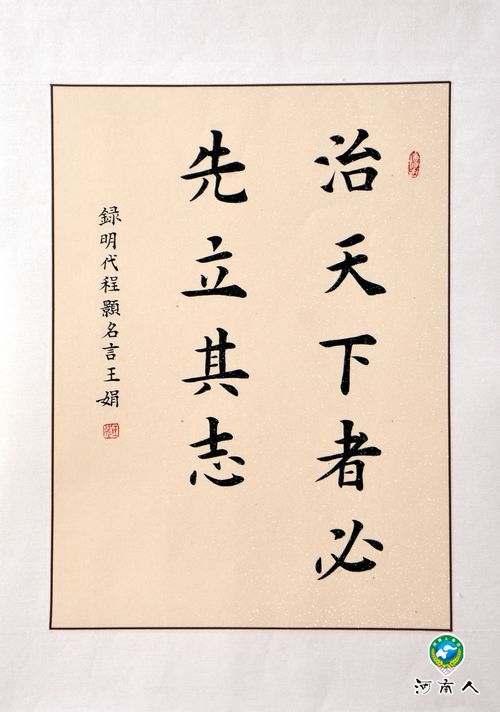 治天下者必
先立其志
録明代程顥名言王娟
河南人